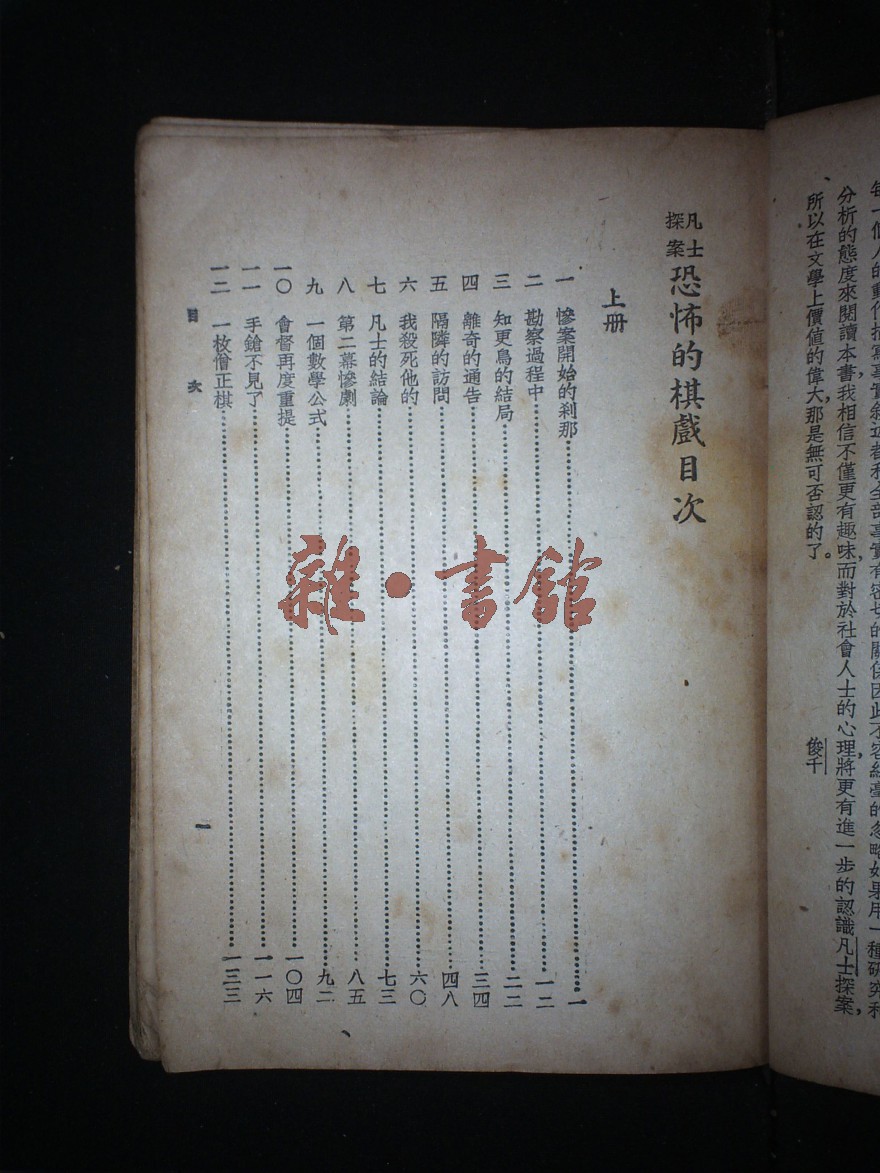 分析的態度來閱讀本書,我相信不僅更有趣味,而對於社會人士的心理,將更有進一步的認識,凡士探案,
所以在文學上價值的偉大,那是無可否認的了。
俊千
凡士探案 恐怖的棋戲目次
上册
一 慘案開始的刹那 一
二 勘察過程中 一二
三 知更鳥的結局 二二
四 離奇的通告 三四
五 隔隣的訪問 四八
六 我殺死他的 六〇
七 凡士的結論 七三
八 第二幕慘劇 八五
九 一個數學公式 九二
一〇 會督再度重提 一〇四
一一 手鎗不見了 一一六
一二 一枚僧正棋 一三三
目 次
一
雜·書館